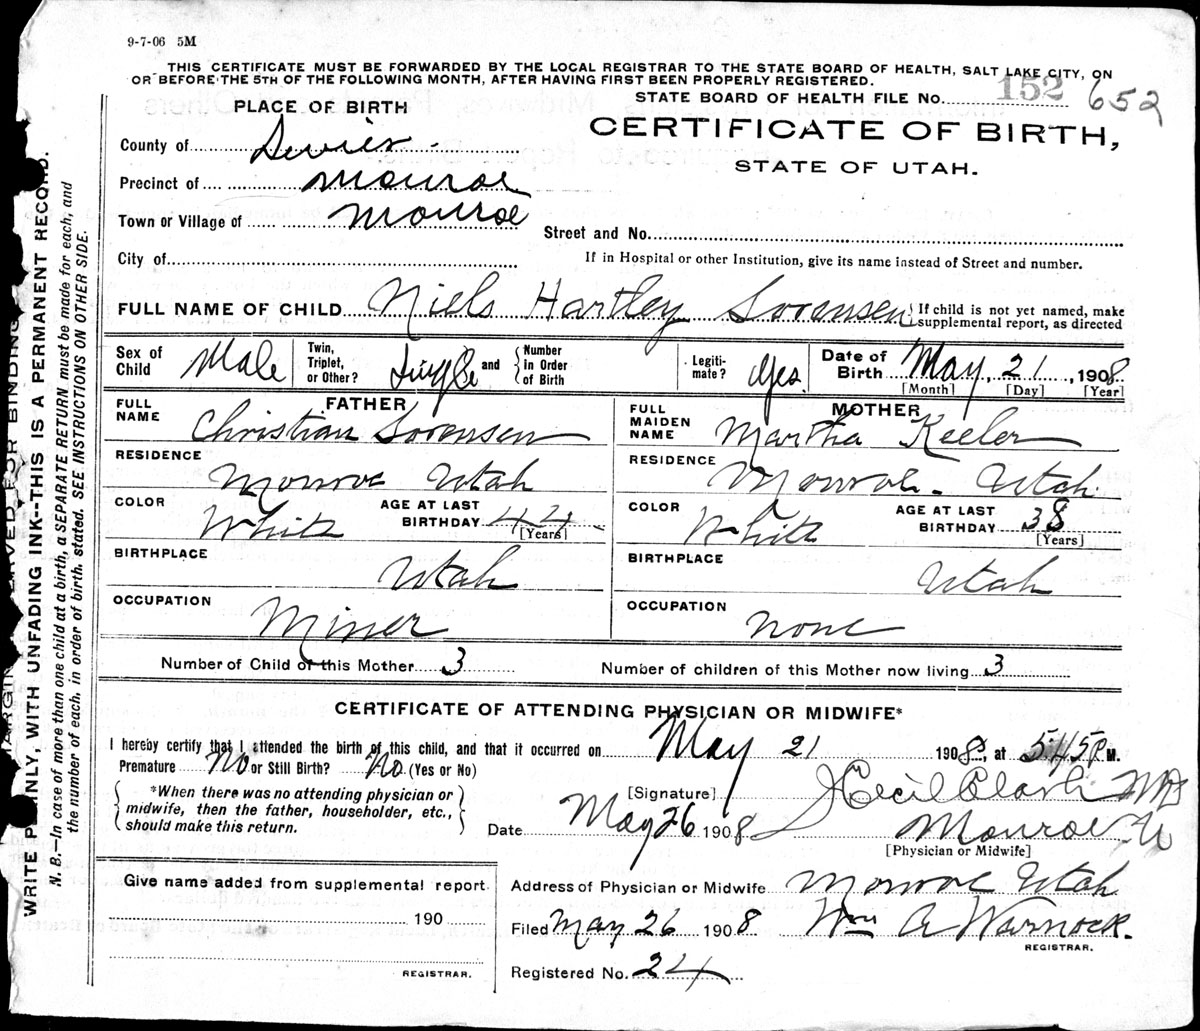 9-7-06 5M
THIS CERTIFICATE MUST BE FORWARDED BY THE LOCAL REGISTRAR TO THE STATE BOARD OF HEALTH, SALT LAKE CITY, ON
OR BEFORE THE 5TH OF THE FOLLOWING MONTH, AFTER HAVING FIRST BEEN PROPERLY REGISTERED.
STATE BOARD OF HEALTH FILE No. 152 652
PLACE OF BIRTH
CERTIFICATE OF BIRTH,
STATE OF UTAH.
County of Sevier
Precinct of Monroe
Town or Village of Monroe
Street and No.
City of
If in Hospital or other Institution, give its name instead of Street and number.
FULL NAME OF CHILD Niels Hartley Sorensen { If child is not yet named, make
supplemental report, as directed
Sex of Child Male
Twin, Triplet, or Other? Single and { Number in Order of Birth
Legiti-mate? Yes
Date of Birth May 21, 1908
[Month] [Day] [Year]
FATHER
FULL NAME Christian Sorensen
RESIDENCE Monroe Utah
COLOR White AGE AT LAST BIRTHDAY 44 [Years]
BIRTHPLACE Utah
OCCUPATION Miner
MOTHER
FULL MAIDEN NAME Martha Keeler
RESIDENCE Monroe Utah
COLOR White AGE AT LAST BIRTHDAY 38 [Years]
BIRTHPLACE Utah
OCCUPATION None
Number of Child of this Mother 3 Number of children of this Mother now living 3
CERTIFICATE OF ATTENDING PHYSICIAN OR MIDWIFE*
I hereby certify that I attended the birth of this child, and that it occurred on May 21 1908, at 5:45 P M.
Premature No or Still Birth? No (Yes or No)
*When there was no attending physician or
midwife, then the father, householder, etc.,
should make this return.
[Signature] Cecil Clark MD
Date May 26 1908 Monroe U
[Physician or Midwife]
Give name added from supplemental report
190
REGISTRAR.
Address of Physician or Midwife Monroe Utah
Filed May 26 1908 Wm A Warnock.
REGISTRAR.
Registered No. 24
WRITE PLAINLY, WITH UNFADING INK--THIS IS A PERMANENT RECORD.
N. B.—In case of more than one child at a birth, a SEPARATE RETURN must be made for each, and
the number of each, in order of birth, stated. SEE INSTRUCTIONS ON OTHER SIDE.
FOR BINDING